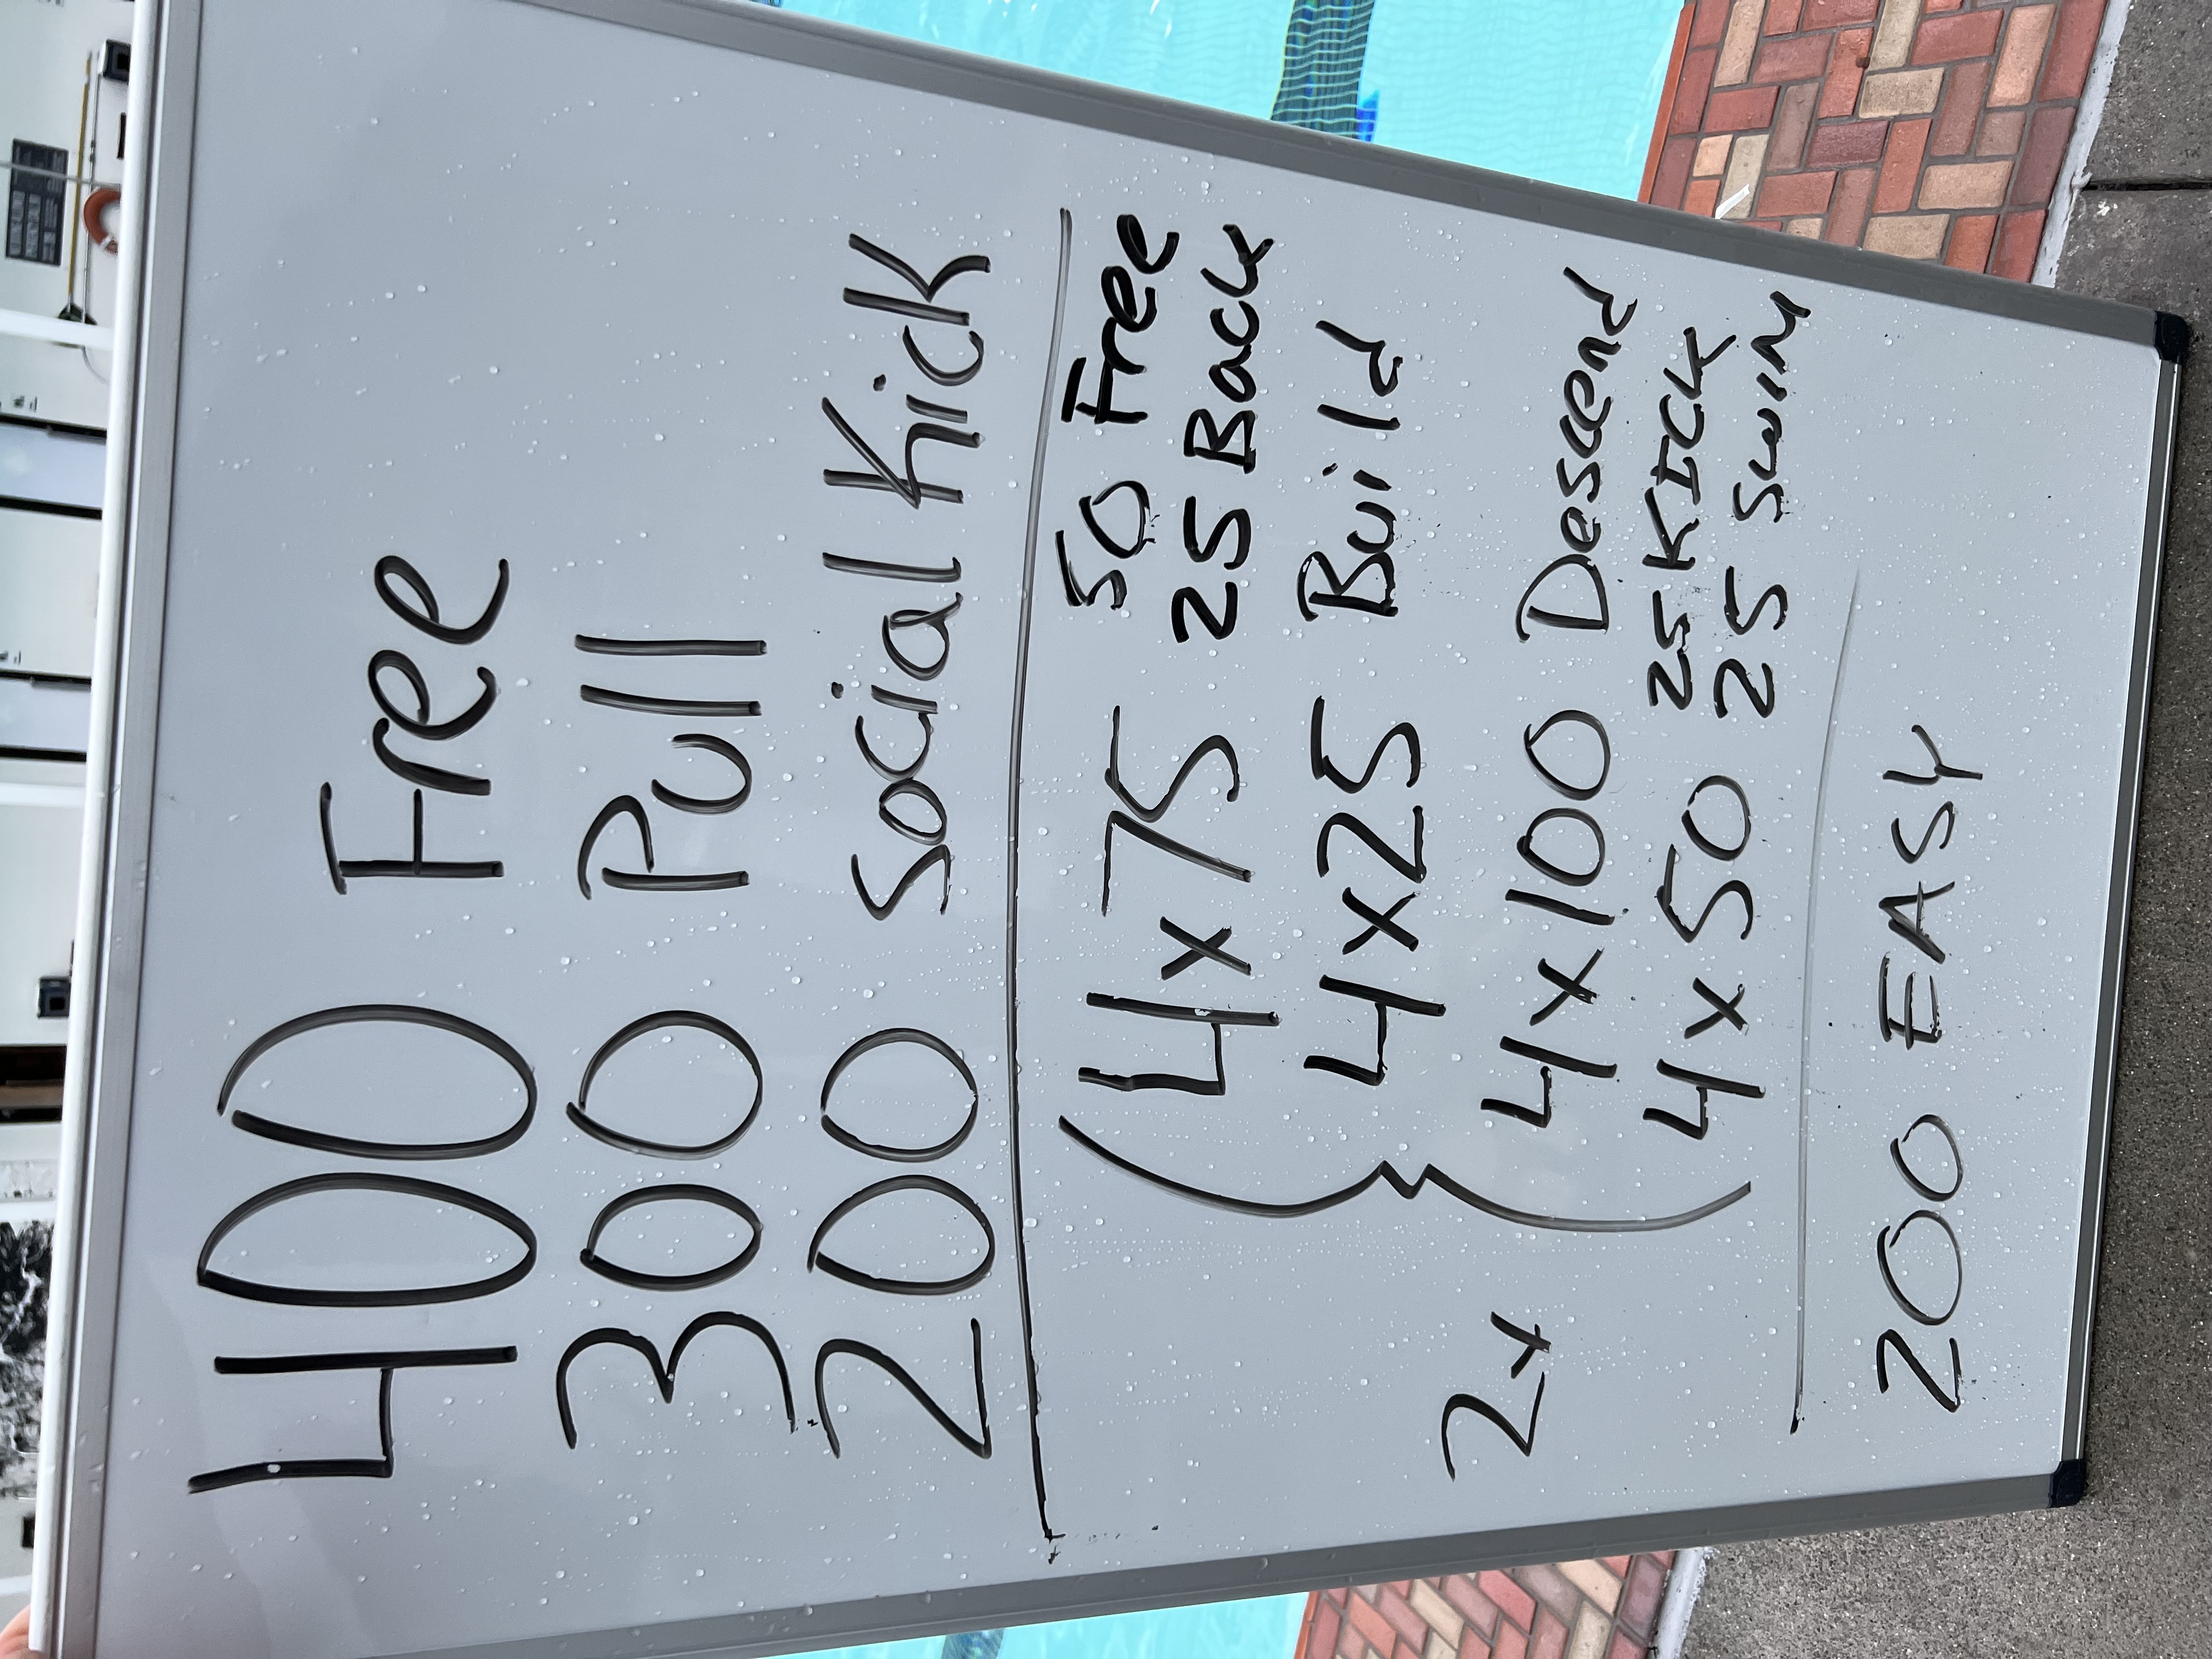 400 Free
300 Pull
200 Social Kick
4x75 50 Free
25 Back
4x25 Build
2x
4x100 Descend
4x50 25 KICK
25 SWIM
200 EASY